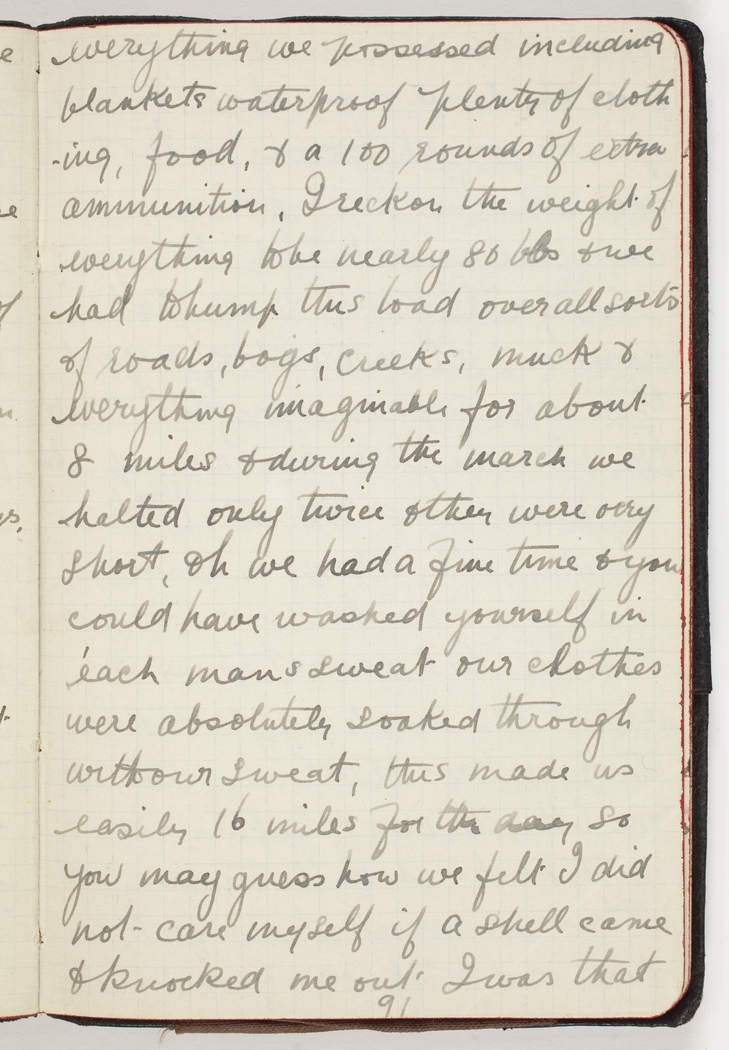 everything we possessed including
blankets waterproof plenty of cloth
-ing, food, & a 100 rounds of extra
ammunition, I reckon the weight of
everything to be nearly 80 lbs & we
had to hump this load over all sorts
of roads, bogs, creeks, muck &
everything imaginable for about
8 miles & during the march we
halted only twice & they were very
short, Oh we had a fine time & you
could have washed yourself in
each mans sweat our clothes
were absolutely soaked through
with our sweat, this made us
easily 16 miles for the day so
you may guess how we felt I did
not care myself if a shell came
& knocked me out I was that
91